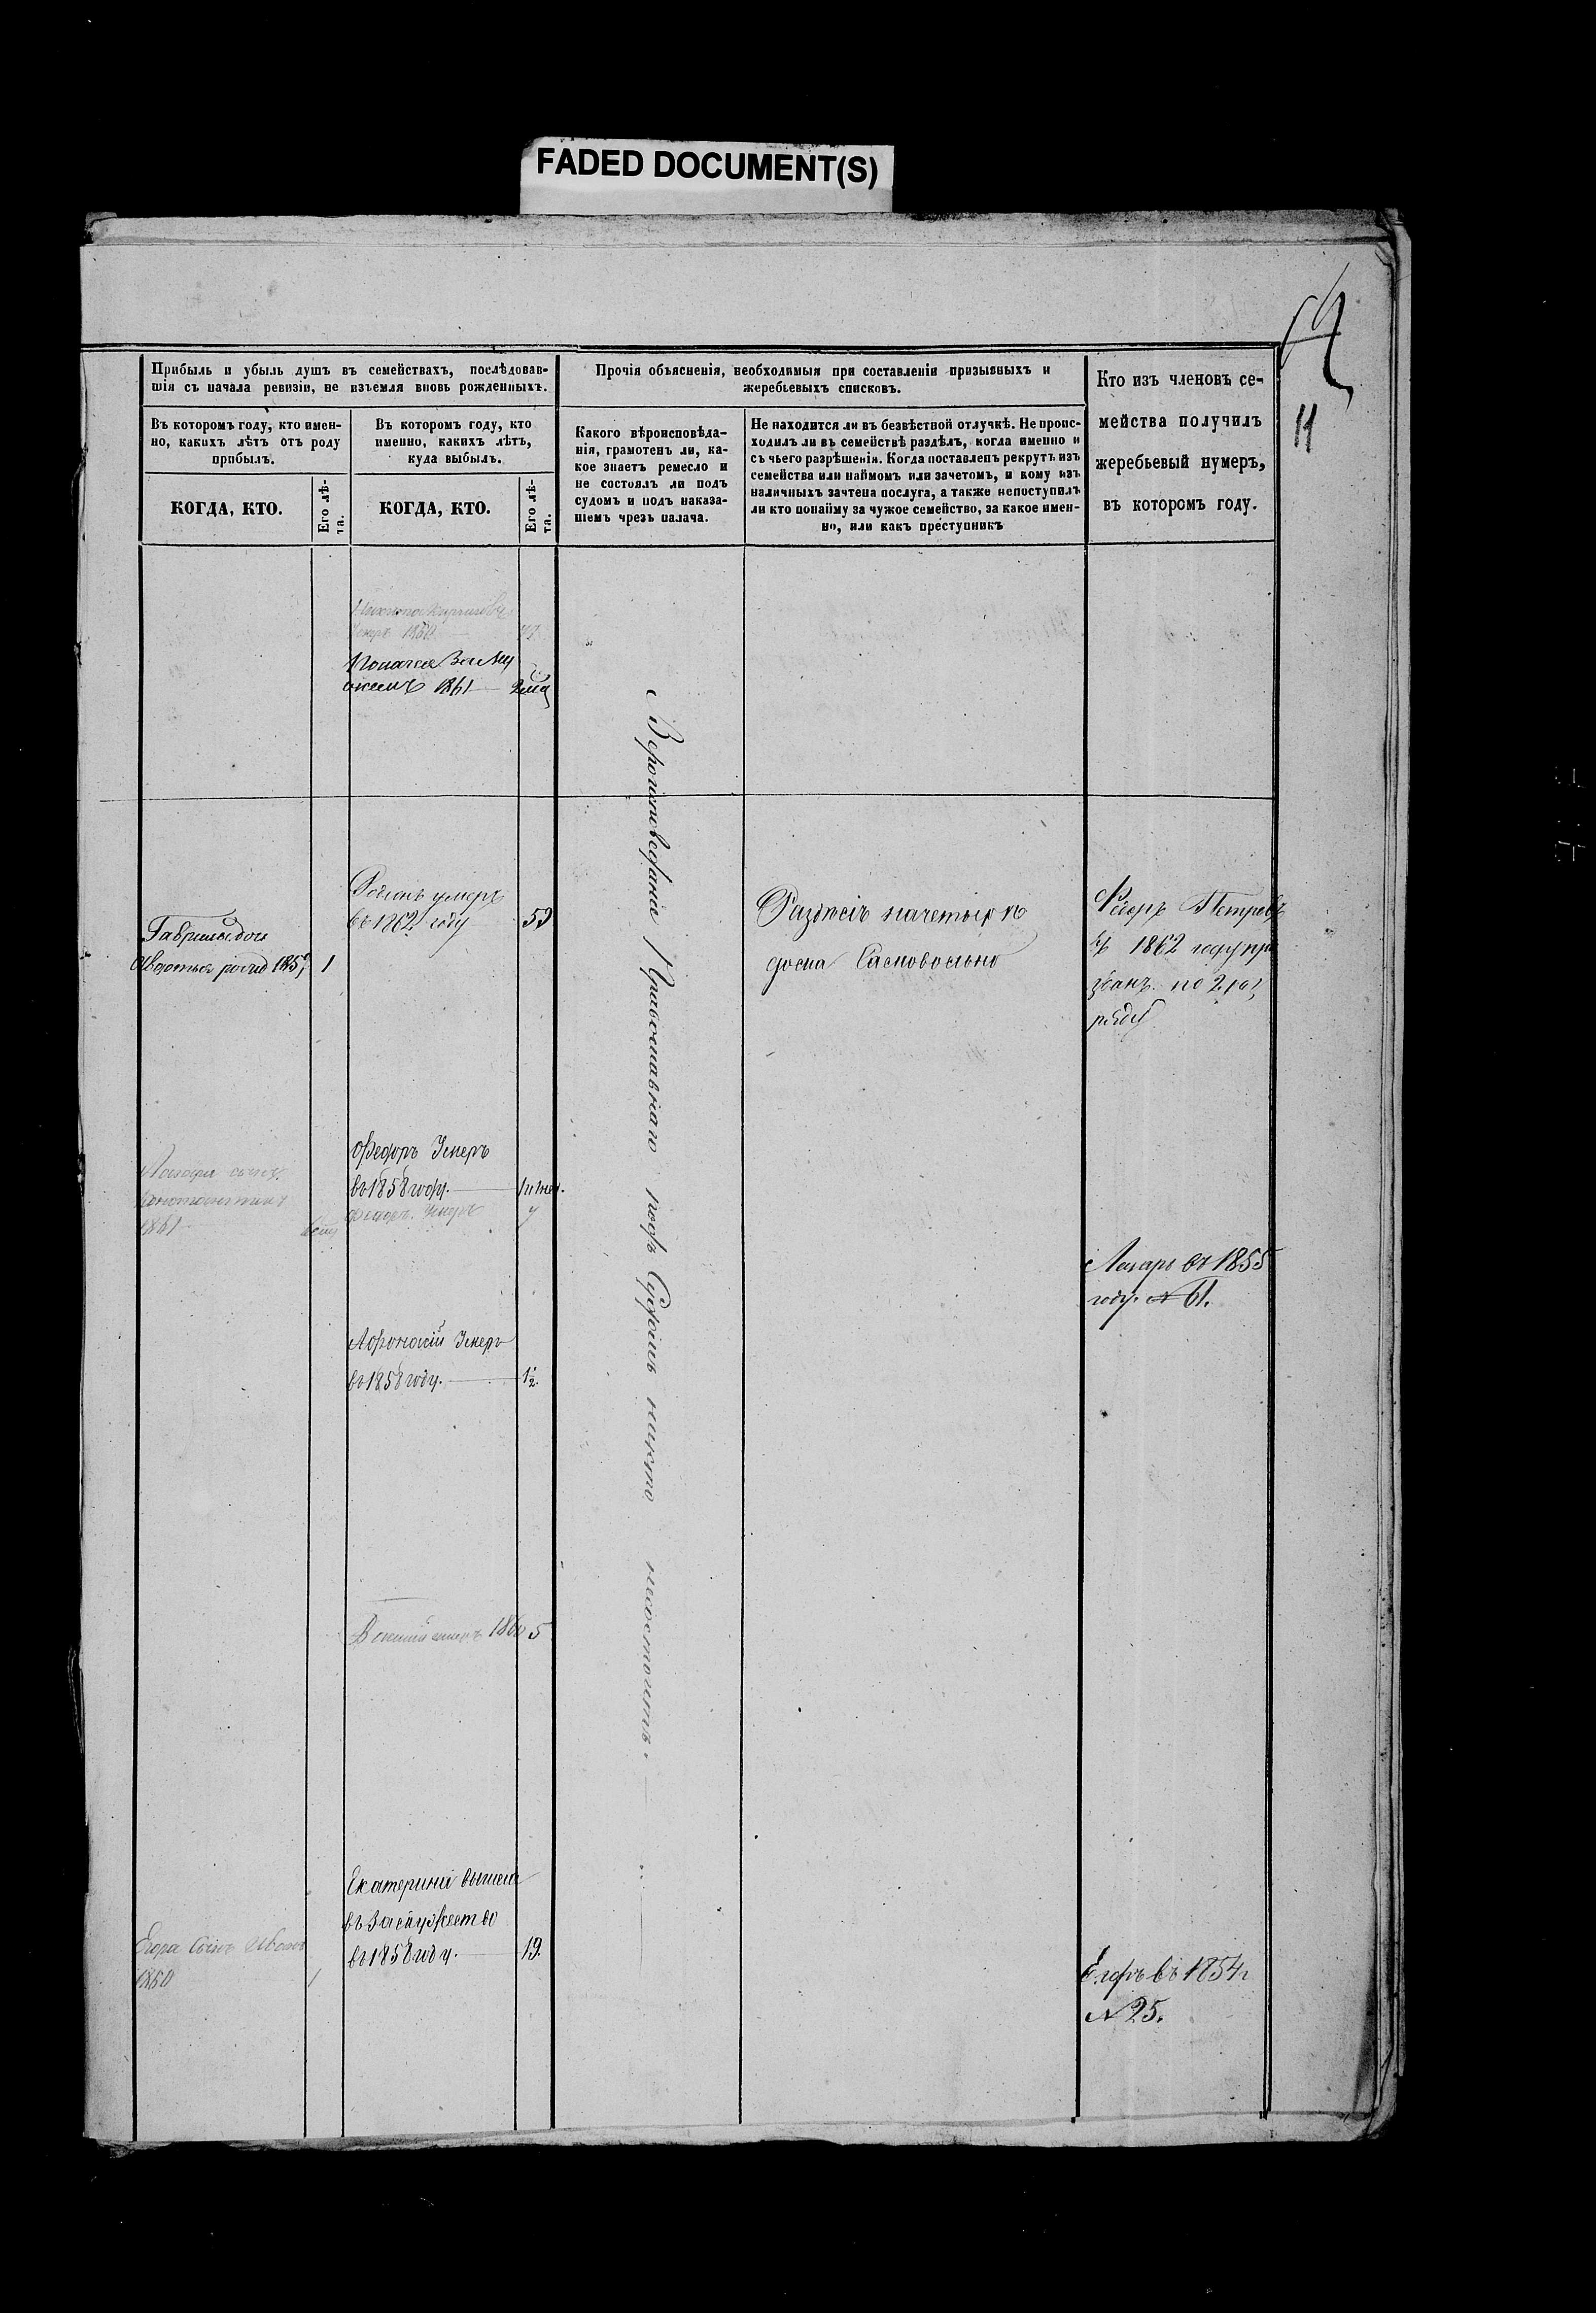 FADED DOCUMENT(S)
11
Прибыль и убыль душъ въ семействахъ, послѣдовав-
шія съ начала ревизіи, не изъемля вновь рожденныхъ.
Прочія объясненія, необходимыя при составленіи призывныхъ и
жеребьевыхъ списковъ.
Кто изъ членовъ се-
мейства получилъ
жеребьевый нумеръ,
въ которомъ году.
Въ которомъ году, кто имен-
но, какихъ лѣтъ отъ роду
прибылъ.
Въ которомъ году, кто
именно, какихъ лѣтъ,
куда выбылъ.
Какого вѣроисповѣда-
нія, грамотенъ ли, ка-
кое знаетъ ремесло и
не состоялъ ли подъ
судомъ и подъ наказа-
ніемъ чрезъ палача.
Не находится ли въ безвѣстной отлучкѣ. Не проис-
ходилъ ли въ семействѣ раздѣлъ, когда именно и
съ чьего разрѣшенія. Когда поставленъ рекрутъ изъ
семейства или наймомъ или зачетомъ, и кому изъ
наличныхъ зачтена послуга, а также непоступилъ
ли кто понайму за чужое семейство, за какое имен-
но, или какъ преступникъ
КОГДА, КТО.
Его лѣ-
та.
КОГДА, КТО.
Его лѣ-
та.
1860
1861
Вероисповеданіе Православнаго подъ Судомъ никто несостоитъ.
Родіонъ умеръ
въ 1862 году 59
Гаврилы
1857 1
Самовольно
Федоръ Петровъ
въ 1862 году при
званъ по 2 раз
ряду
Федоръ Умеръ
въ 1858 году.
Федоръ Умеръ
сынъ
Константинъ
1861
Лазарь въ 1855
году. № 61.
Афонасій Умеръ
въ 1858 году. 1½.
Василій умеръ 1860 5
Екатерина вышла
въ Замужество
въ 1858 году. 19.
Егора Сынъ Иванъ
1860 1
Егоръ въ 1854 г
№ 25.